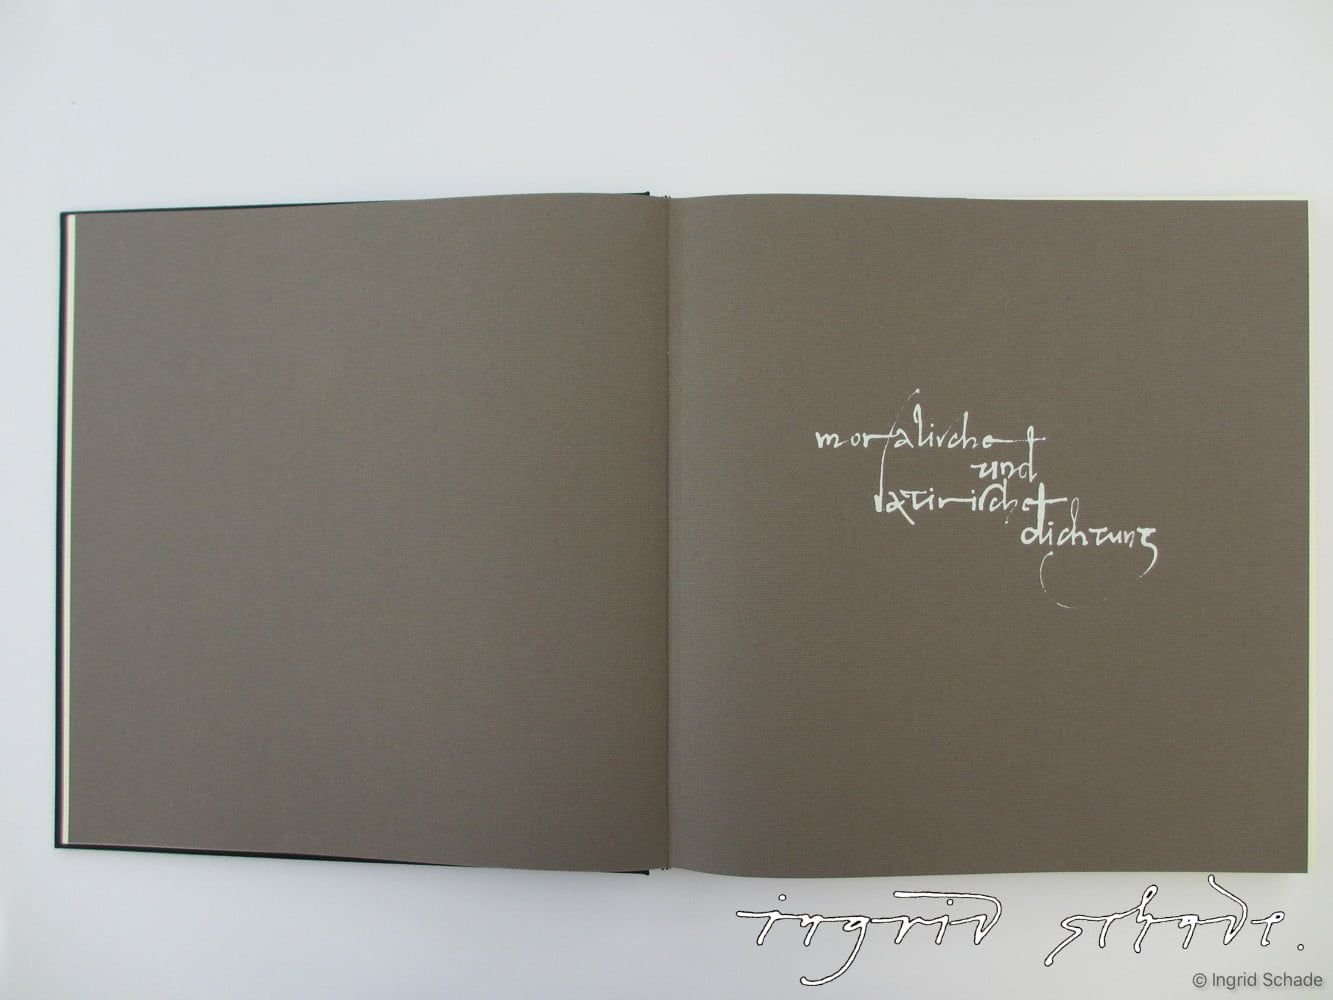 moralische
und
satirische
dichtung
ingrid schade.
© Ingrid Schade